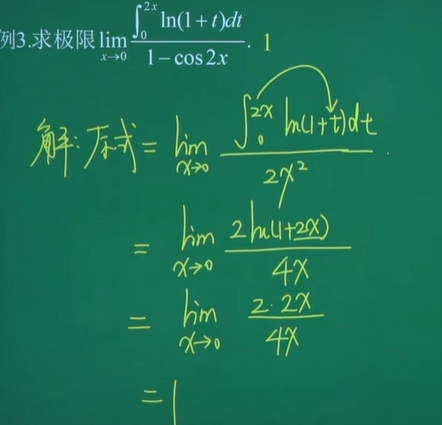 例3.求极限 lim_{x→0} ∫_0^{2x} ln(1+t)dt / (1−cos2x). 1
解:原式 = lim_{x→0} ∫_0^{2x} ln(1+t)dt / 2x²
= lim_{x→0} 2ln(1+2x) / 4x
= lim_{x→0} 2·2x / 4x
= 1